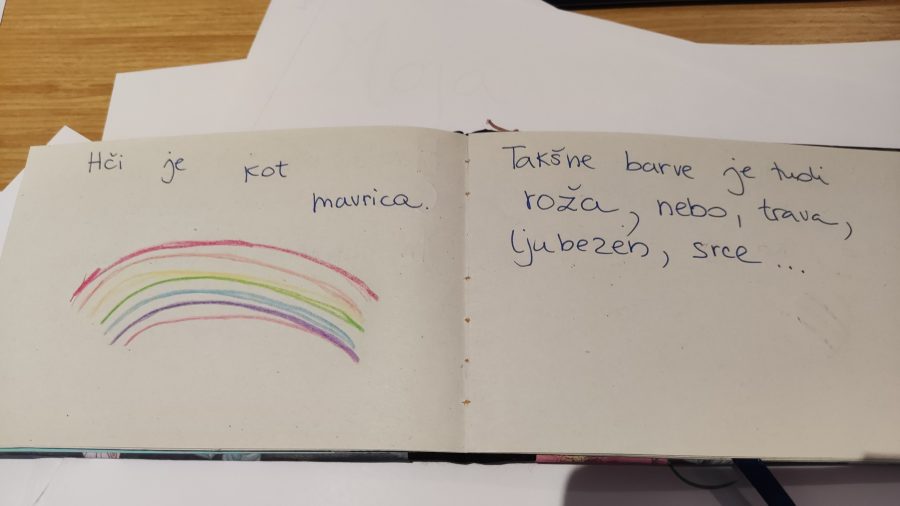 Maja
Hči je kot
mavrica.
Takšne barve je tudi
roža, nebo, trava,
ljubezen, srce...